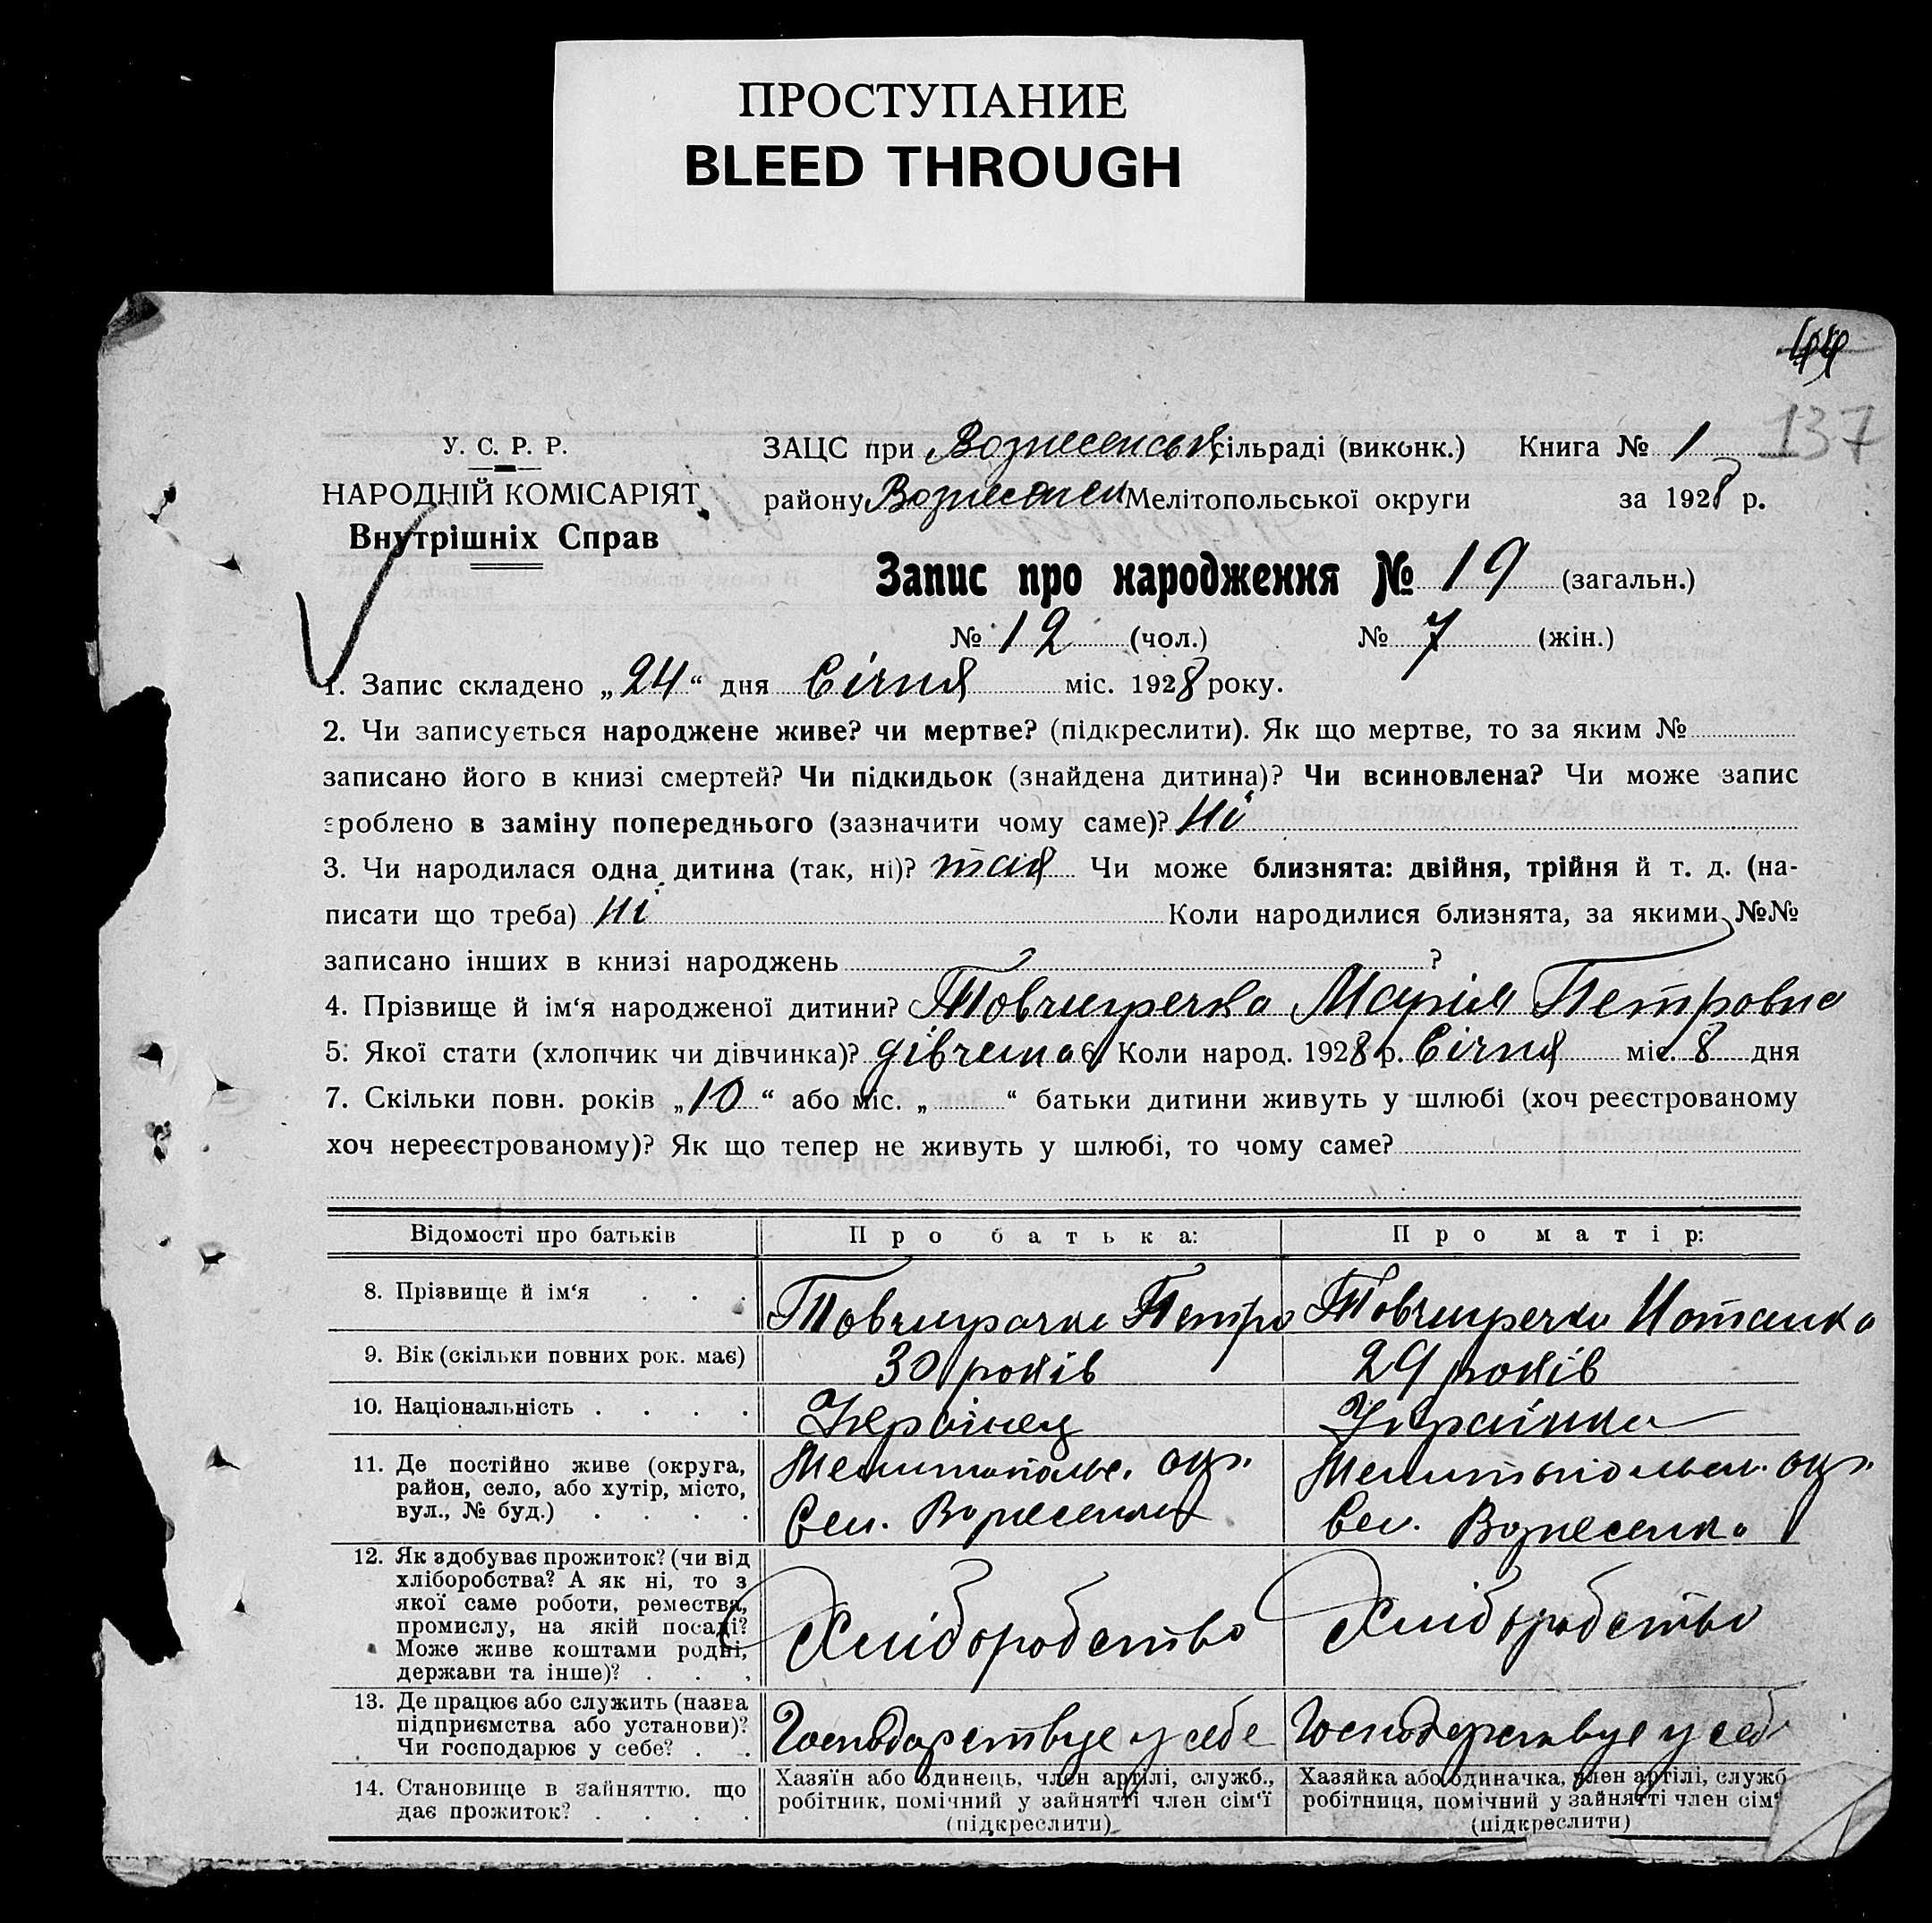 ПРОСТУПАНИЕ
BLEED THROUGH
137
У. С. Р. Р.
НАРОДНІЙ КОМІСАРІЯТ
Внутрішніх Справ
ЗАЦС при Вознесенськ сільраді (виконк.) Книга № 1
району Вознесенськ Мелітопольської округи за 1928 р.
Запис про народження № 19 (загальн.)
№ 12 (чол.) № 7 (жін.)
1. Запис складено „24“ дня Січня міс. 1928 року.
2. Чи записується народжене живе? чи мертве? (підкреслити). Як що мертве, то за яким №
записано його в книзі смертей? Чи підкидьок (знайдена дитина)? Чи всиновлена? Чи може запис
зроблено в заміну попереднього (зазначити чому саме)? Ні
3. Чи народилася одна дитина (так, ні)? так Чи може близнята: двійня, трійня й т. д. (на-
писати що треба) Ні Коли народилися близнята, за якими №№
записано інших в книзі народжень ?
4. Прізвище й ім‘я народженої дитини? Товчигречко Марія Петровна
5. Якої стати (хлопчик чи дівчинка)? дівчина 6. Коли народ. 1928 р. Січня міс. 8 дня
7. Скільки повн. років „10“ або міс. „ “ батьки дитини живуть у шлюбі (хоч реєстрованому
хоч нереєстрованому)? Як що тепер не живуть у шлюбі, то чому саме?
Відомості про батьків Про батька: Про матір:
8. Прізвище й ім‘я . . . Товчигречко Петро Товчигречко Наталка
9. Вік (скільки повних рок. має) 30 років 29 років
10. Національність . . . . Українец Українка
11. Де постійно живе (округа,
район, село, або хутір, місто,
вул., № буд.) . . . .
Мелитопольс. окр.
Сел. Вознесенка
Мелитопольськ. окр.
Сел. Вознесенка
12. Як здобуває прожиток? (чи від
хліборобства? А як ні, то з
якої саме роботи, ремества,
промислу, на якій посаді?
Може живе коштами родні,
держави та інше)? . . .
Хліборобство Хліборобство
13. Де працює або служить (назва
підприємства або установи)?
Чи господарює у себе? . .
Господарствує у себе Господарствує у себе
14. Становище в зайняттю, що
дає прожиток? . . . .
Хазяїн або одинець, член артілі, служб.,
робітник, помічний у зайнятті член сім‘ї
(підкреслити)
Хазяйка або одиначка, член артілі, служб
робітниця, помічний у зайнятті член сім‘
(підкреслити)